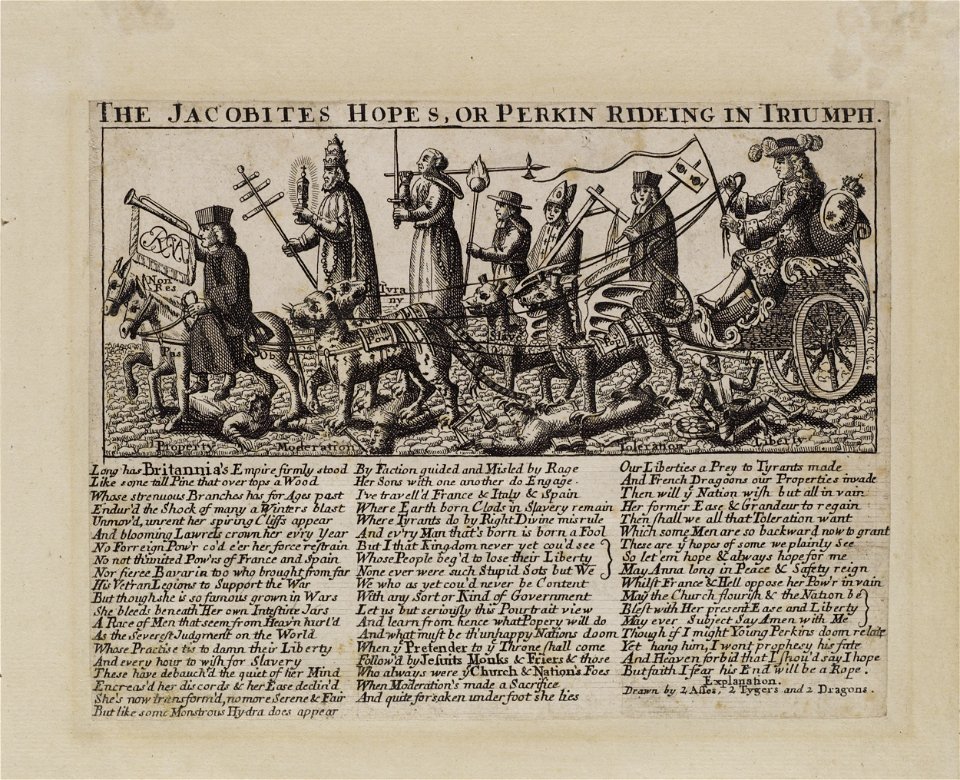 THE JACOBITES HOPES, OR PERKIN RIDEING IN TRIUMPH.
Non
Res
Pas
Ob
Tyra
ny
Property
Moderation
Toleration
Liberty
Long has Britannia's Empire firmly stood
Like some tall Pine that over tops a Wood
Whose strenuous Branches has for Ages past
Endur'd the Shock of many a Winters blast
Unmov'd, unrent her spiring Cliffs appear
And blooming Lawrels crown her ev'ry Year
No Forreign Pow'r co'd e'er her force restrain
No not th'united Pow'rs of France and Spain
Nor fierce Bavaria too who brought from far
His Vet'ran Legions to Support the War
But though she is so famous grown in Wars
She bleeds beneath Her own Intestine Jars
A Race of Men that seem from Heav'n hurl'd
As the Severest Judgment on the World
Whose Practise tis to damn their Liberty
And every hour to wish for Slavery
These have debauch'd the quiet of her Mind
Encreas'd her discords & her Ease declin'd
She's now transform'd, no more Serene & Fair
But like some Monstrous Hydra does appear
By Faction guided and Misled by Rage
Her Sons with one another do Engage.
I've travell'd France & Italy & Spain
Where Earth born Clods in Slavery remain
Where Tyrants do by Right Divine misrule
And ev'ry Man that's born is born a Fool
But I that Kingdom never yet cou'd see
Whose People beg'd to lose their Liberty
None ever were such Stupid Sots but We
We who as yet cou'd never be Content
With any Sort or Kind of Government
Let us but seriously this Pourtrait view
And learn from hence what Popery will do
And what must be th'unhappy Nations doom
When ye Pretender to ye Throne shall come
Follow'd by Jesuits Monks & Friers & those
Who always were ye Church & Nation's Foes
When Moderation's made a Sacrifice
And quite forsaken under foot she lies
Our Liberties a Prey to Tyrants made
And French Dragoons our Properties invade
Then will ye Nation wish but all in vain
Her former Ease & Grandeur to regain
Then shall we all that Toleration want
Which some Men are so backward now to grant
These are ye hopes of some we plainly See
So let 'em hope & always hope for me
May Anna long in Peace & Safety reign
Whilst France & Hell oppose her Pow'r in vain
May the Church flourish & the Nation be
Blest with Her present Ease and Liberty
May ever Subject Say Amen with Me
Though if I might Young Perkins doom relate
Yet hang him, I wont prophesy his fate
And Heaven forbid that I shou'd say I hope
But faith I fear his End will be a Rope.
Explanation.
Drawn by 2 Asses, 2 Tygers and 2 Dragons.